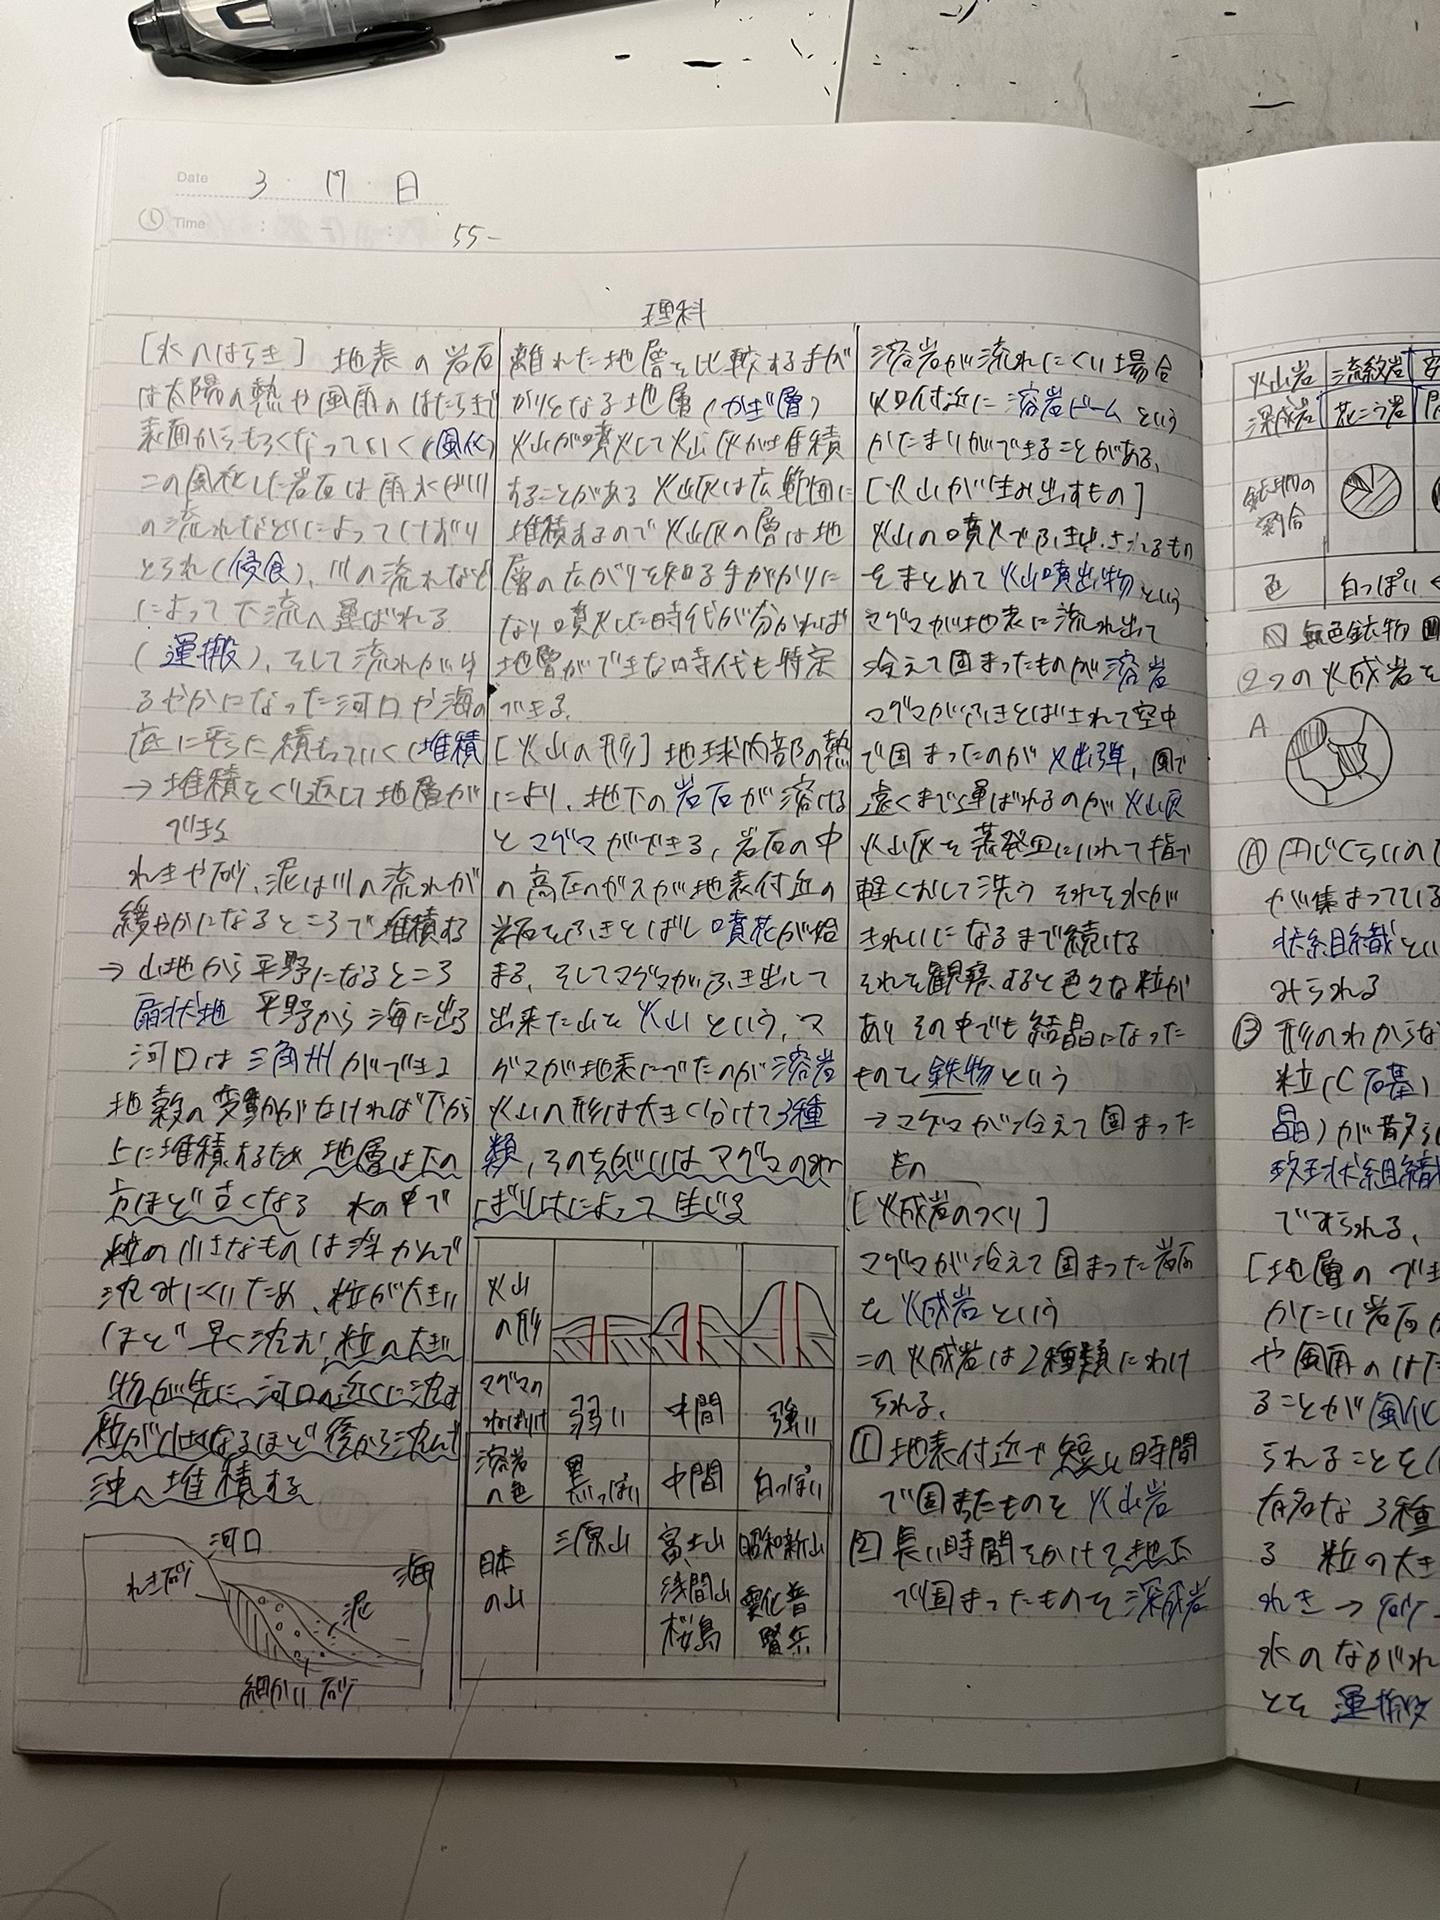 Date 3・17・日
Time : - :
55-
理科
[水のはらき] 地表の岩石
は太陽の熱や風雨のはたらきで
表面からもろくなっていく(風化)
この風化した岩石は雨水や川
の流れなどによってけずり
とられ(侵食)、川の流れなど
によって下流へ運ばれる
(運搬)、そして流れがゆ
るやかになった河口や海の
底に平らに積もっていく(堆積
→堆積をくり返して地層が
できる
れきや砂、泥は川の流れが
緩やかになるところで堆積する
→山地から平野になるところ
扇状地 平野から海に出る
河口は三角州ができる
地殻の変動がなければ下から
上に堆積するため 地層は下の
方ほど古くなる 水の中で
粒の小さなものは浮かんで
沈みにくいため、粒が大きい
ほど早く沈む、粒の大きい
物が先に河口の近くに沈み
粒が小さくなるほど後から沈んで
沖へ堆積する
河口
れき砂
海
泥
細かい砂
離れた地層を比較する手が
がりとなる地層(かぎ層)
火山が噴火して火山灰が堆積
することがある 火山灰は広範囲に
堆積するので火山灰の層は地
層の広がりを知る手がかりに
なり噴火した時代が分かれば
地層ができた時代も特定
できる、
[火山の形] 地球内部の熱
により、地下の岩石が溶ける
とマグマができる、岩石の中
の高圧のガスが地表付近の
岩石をふきとばし噴火が始
まる、そしてマグマがふき出して
出来た山を火山という、マ
グマが地表にでたのが溶岩
火山の形は大きく分けて3種
類、そのちがいはマグマのねば
ばりけによって生じる
火山の形
マグマのねばりけ 弱い 中間 強い
溶岩の色 黒っぽい 中間 白っぽい
日本の山 三原山 富士山 昭和新山
浅間山 雲仙普
桜島 賢岳
溶岩が流れにくい場合
火口付近に溶岩ドームという
かたまりができることがある、
[火山が生み出すもの]
火山の噴火でふき出されるもの
をまとめて火山噴出物という
マグマが地表に流れ出て
冷えて固まったものが溶岩
マグマがふきとばされて空中
で固まったのが火山弾、風で
遠くまで運ばれるのが火山灰
火山灰を蒸発皿にいれて指で
軽くおして洗う それを水が
きれいになるまで続ける
それを観察すると色々な粒が
あり その中でも結晶になった
ものを鉱物という
→マグマが冷えて固まった
もの
[火成岩のつくり]
マグマが冷えて固まった岩石
を火成岩という
この火成岩は2種類にわけ
られる、
①地表付近で短い時間
で固まったものを火山岩
②長い時間をかけて地下
で固まったものを深成岩
火山岩 流紋岩 安
深成岩 花こう岩
鉱物の割合
色 白っぽい ←
無色鉱物
2つの火成岩を
A
Ⓐ 同じくらいの
が集まっている
状組織とい
みられる
Ⓑ 形のわからな
粒(石基)
晶)が散ら
斑状組織
でみられる、
[地層のでき
かたい岩石
や風雨のはた
ることが(風化
られることを(
有名な3種
る 粒の大き
れき→砂→
水のながれ
とを運搬